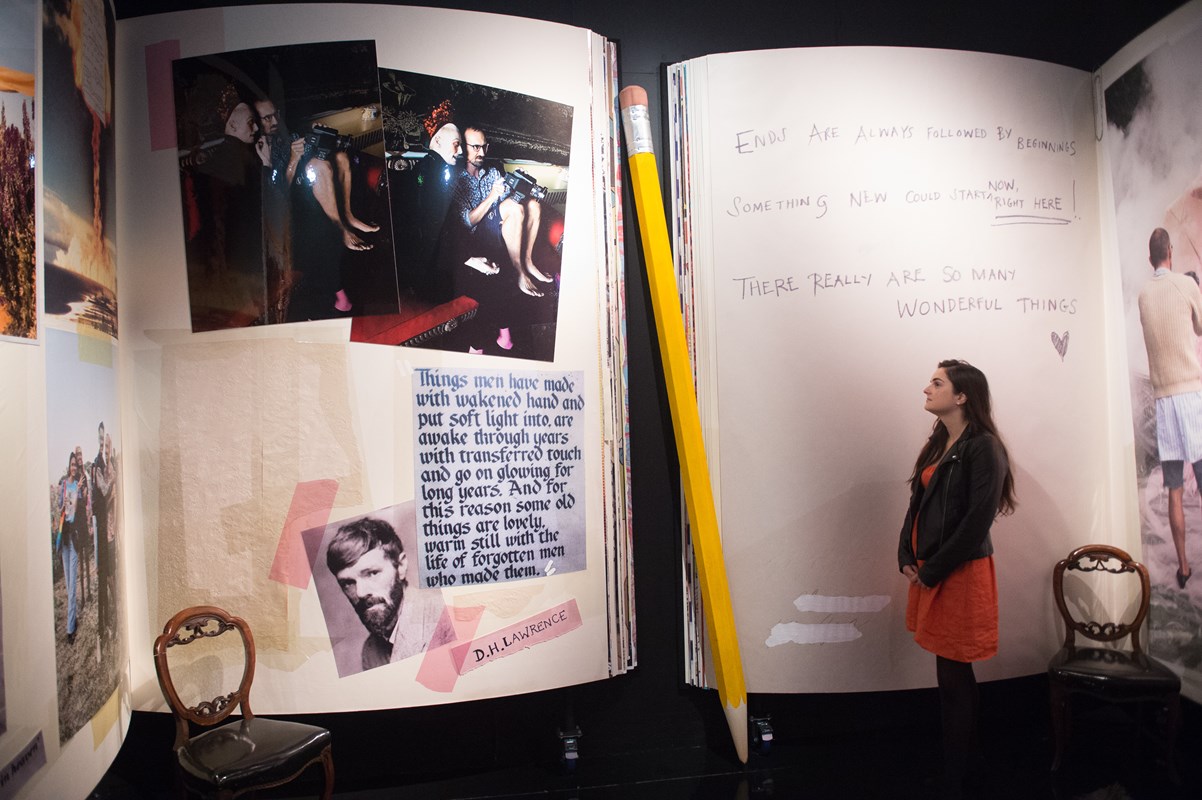 Things men have made
with wakened hand and
put soft light into. are
awake through years
with transferred touch
and go on glowing for
long years. And for
this reason some old
things are lovely,
warm still with the
life of forgotten men
who made them.
D.H. LAWRENCE
ENDS ARE ALWAYS FOLLOWED BY BEGINNINGS
SOMETHING NEW COULD START NOW,
RIGHT HERE!
THERE REALLY ARE SO MANY
WONDERFUL THINGS